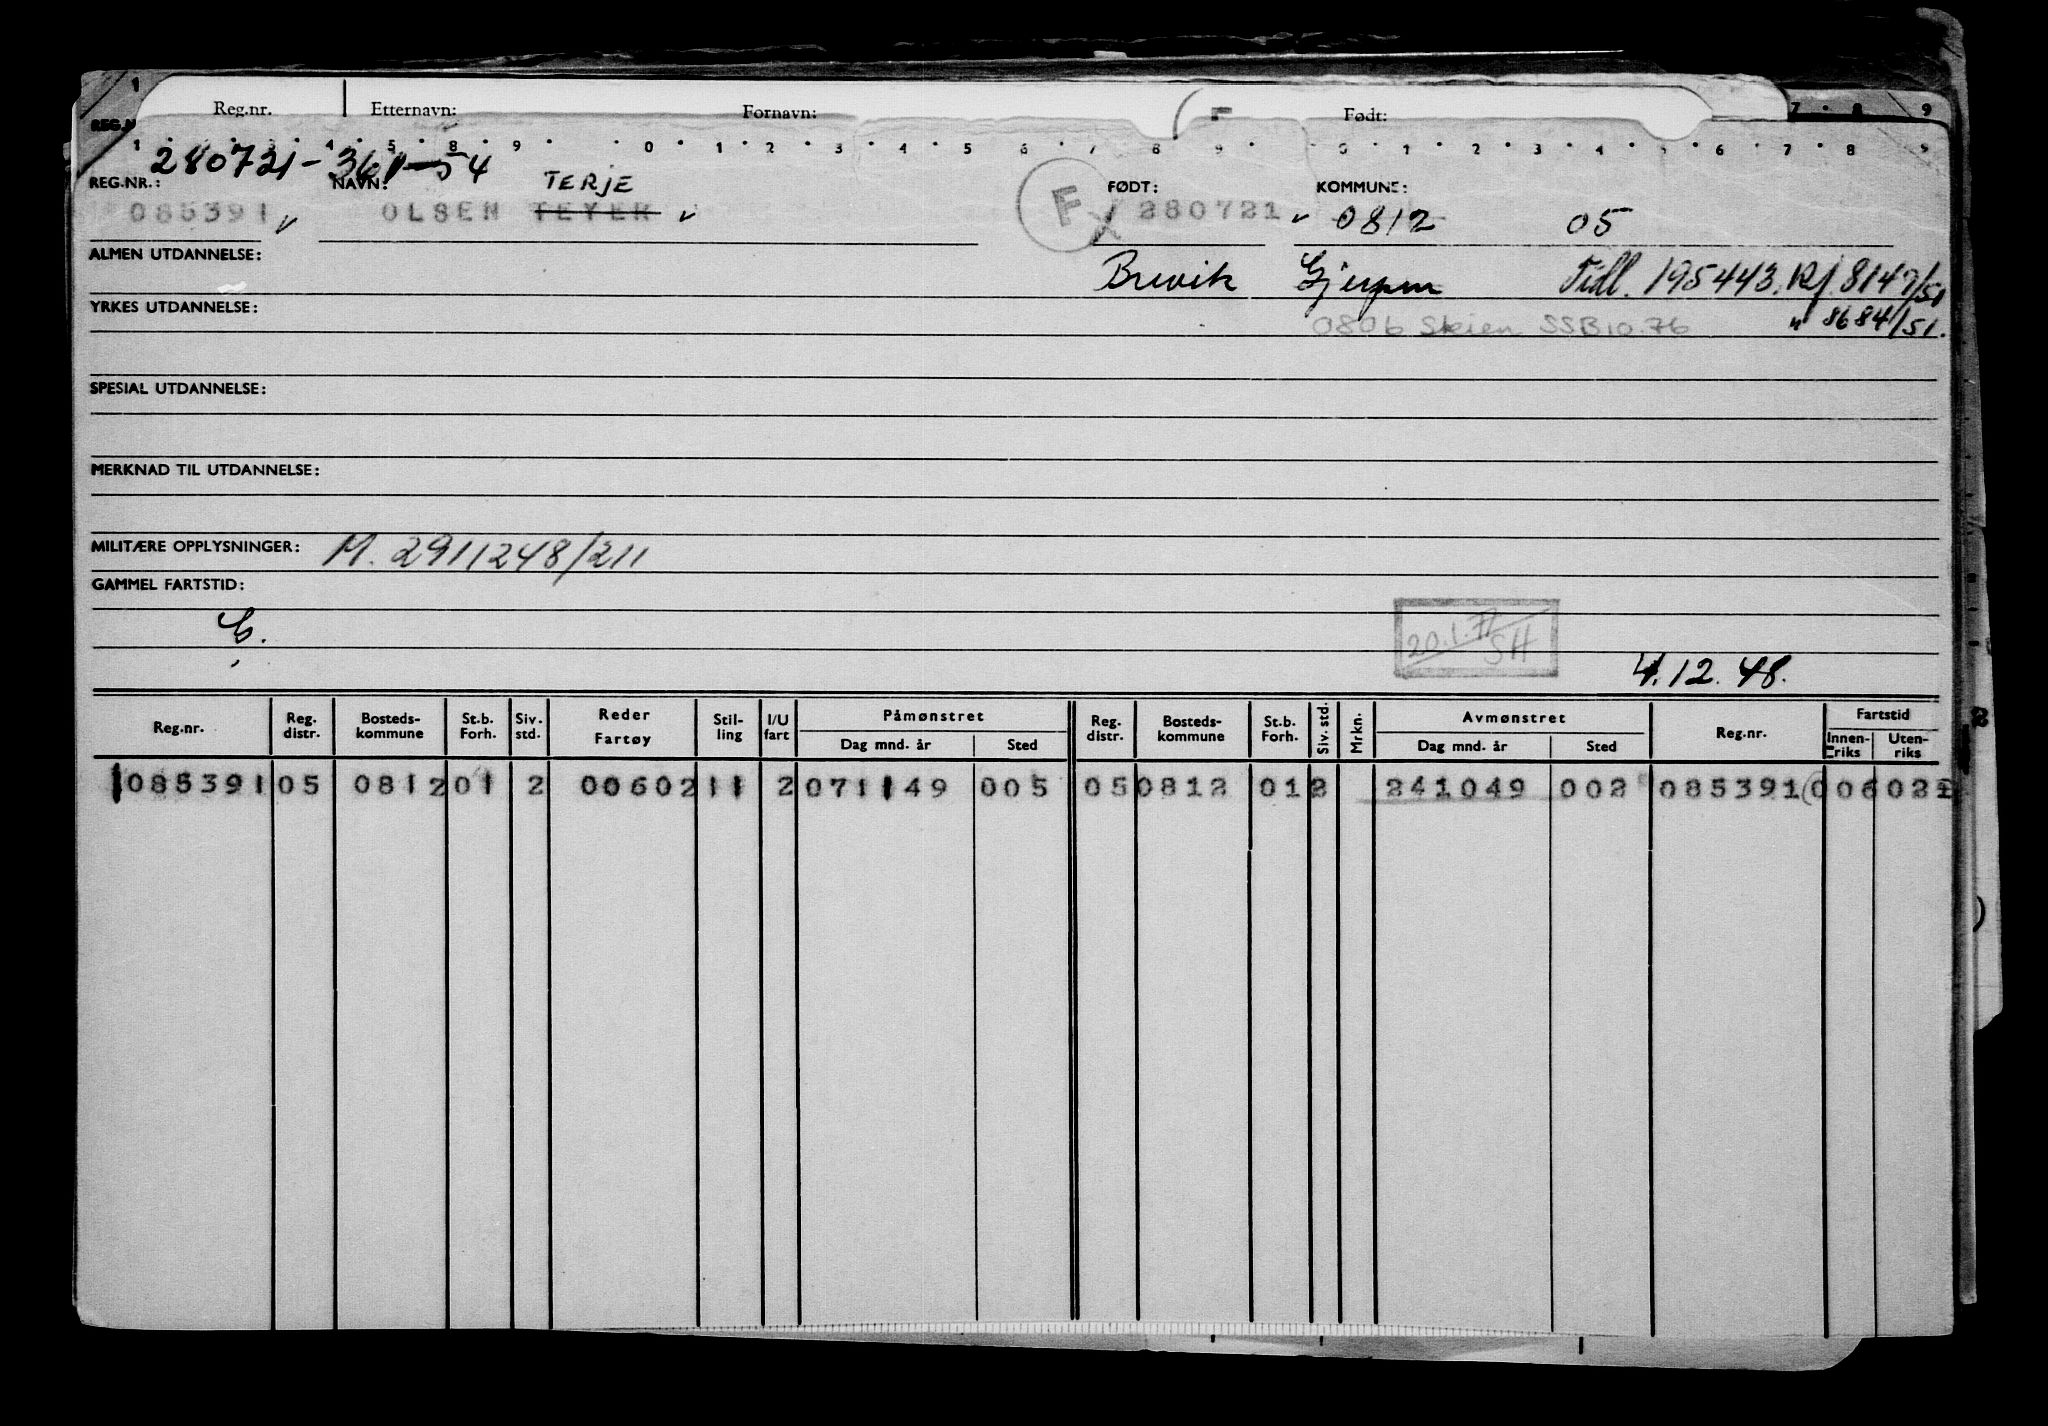 Reg.nr. Etternavn: Fornavn: F Født: 7 8 9
280721-361-54
REG.NR.: NAVN: TERJE FØDT: KOMMUNE:
085391 OLSEN TEYER F 280721 0812 05
ALMEN UTDANNELSE: Brevik Gjerpen Tidl. 195443. Rj. 8147/51
YRKES UTDANNELSE: 0806 Skien SSB 10.76 " 8684/51.
SPESIAL UTDANNELSE:
MERKNAD TIL UTDANNELSE:
MILITÆRE OPPLYSNINGER: M. 2911248/211
GAMMEL FARTSTID:
20.1.77 SH
4.12.48.
Reg.nr. Reg. distr. Bosteds-kommune St.b. Forh. Siv. std. Reder Fartøy Stil-ling I/U fart Påmønstret Dag mnd. år Sted Reg. distr. Bosteds-kommune St.b. Forh. Siv. std. Mrkn. Avmønstret Dag mnd. år Sted Reg.nr. Fartstid Innen-riks Uten-riks
085391 05 0812 01 2 00602 11 2 071149 005 05 0812 01 2 241049 002 085391 006021